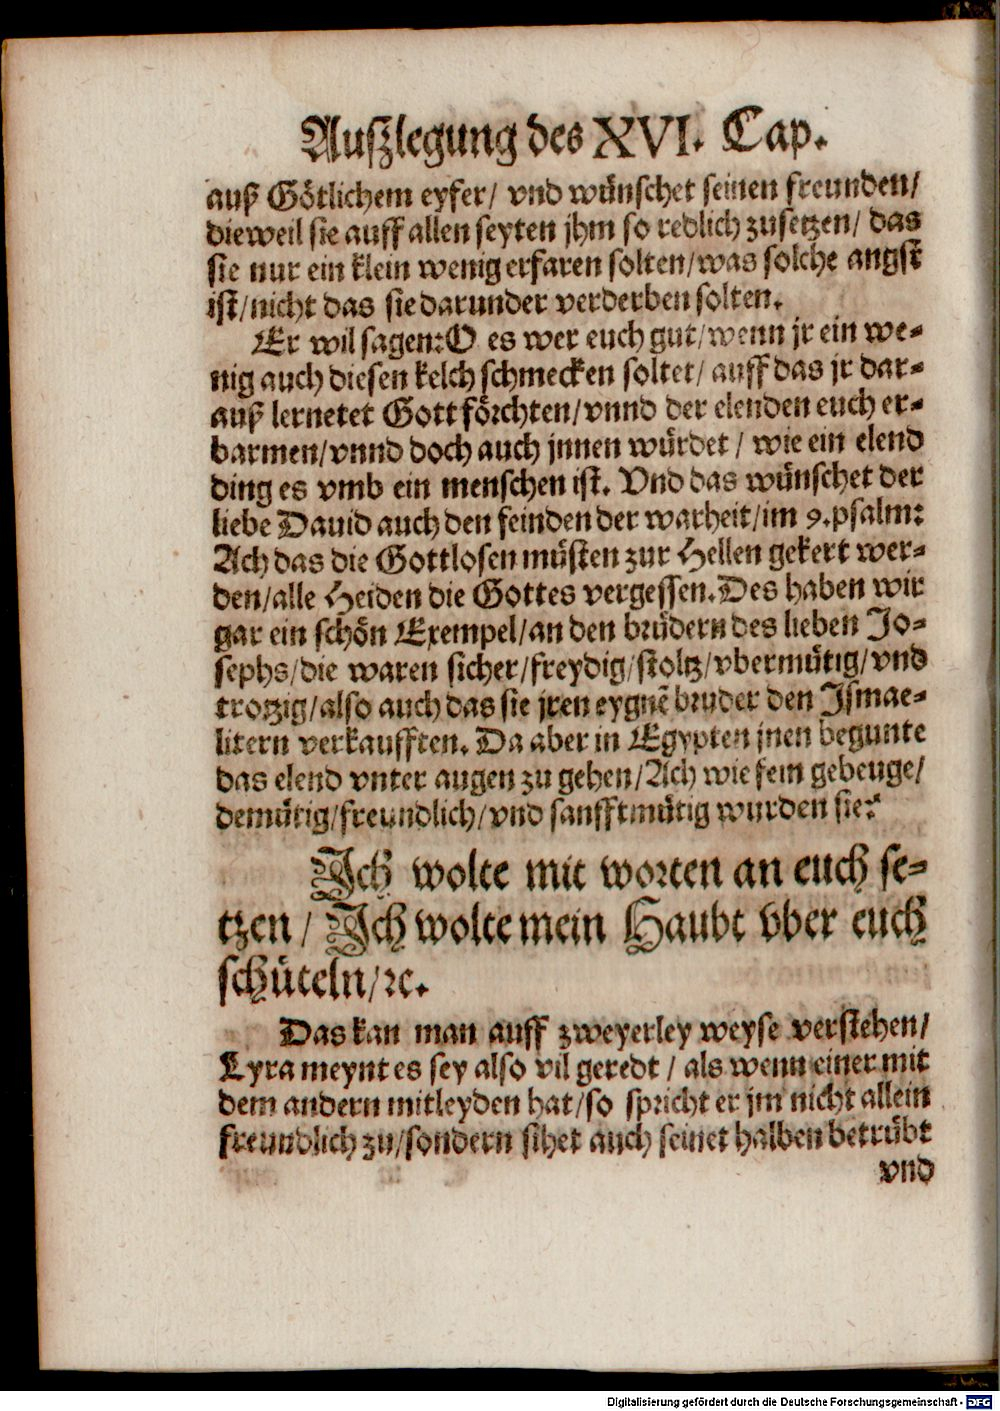 Außlegung des XVI. Cap.
auß Götlichem eyfer/ vnd wünschet seinen freunden/
dieweil sie auff allen seyten jhm so redlich zusetzen/ das
sie nur ein klein wenig erfaren solten/was solche angst
ist/nicht das sie darunder verderben solten.
Er wil sagen:O es wer euch gut/wenn jr ein we-
nig auch diesen kelch schmecken soltet/ auff das jr dar-
auß lernetet Gott förchten/vnnd der elenden euch er-
barmen/vnnd doch auch jnnen würdet / wie ein elend
ding es vmb ein menschen ist. Vnd das wünschet der
liebe Dauid auch den feinden der warheit/im 9.psalm:
Ach das die Gottlosen müsten zur Hellen gekert wer-
den/alle Heiden die Gottes vergessen.Des haben wir
gar ein schön Exempel/an den brüdern des lieben Jo-
sephs/die waren sicher/freydig/stoltz/vbermütig/vnd
trotzig/also auch das sie jren eygnē bruder den Ismae-
litern verkaufften. Da aber in Egypten jnen begunte
das elend vnter augen zu gehen/Ach wie fein gebeuge/
demütig/freundlich/vnd sanfftmütig wurden sie?
Ich wolte mit worten an euch se-
tzen / Ich wolte mein Haubt vber euch
schüteln/ꝛc.
Das kan man auff zweyerley weyse verstehen/
Lyra meynt es sey also vil geredt / als wenn einer mit
dem andern mitleyden hat/so spricht er jm nicht allein
freundlich zu/sondern sihet auch seinet halben betrübt
vnd
Digitalisierung gefördert durch die Deutsche Forschungsgemeinschaft - DFG